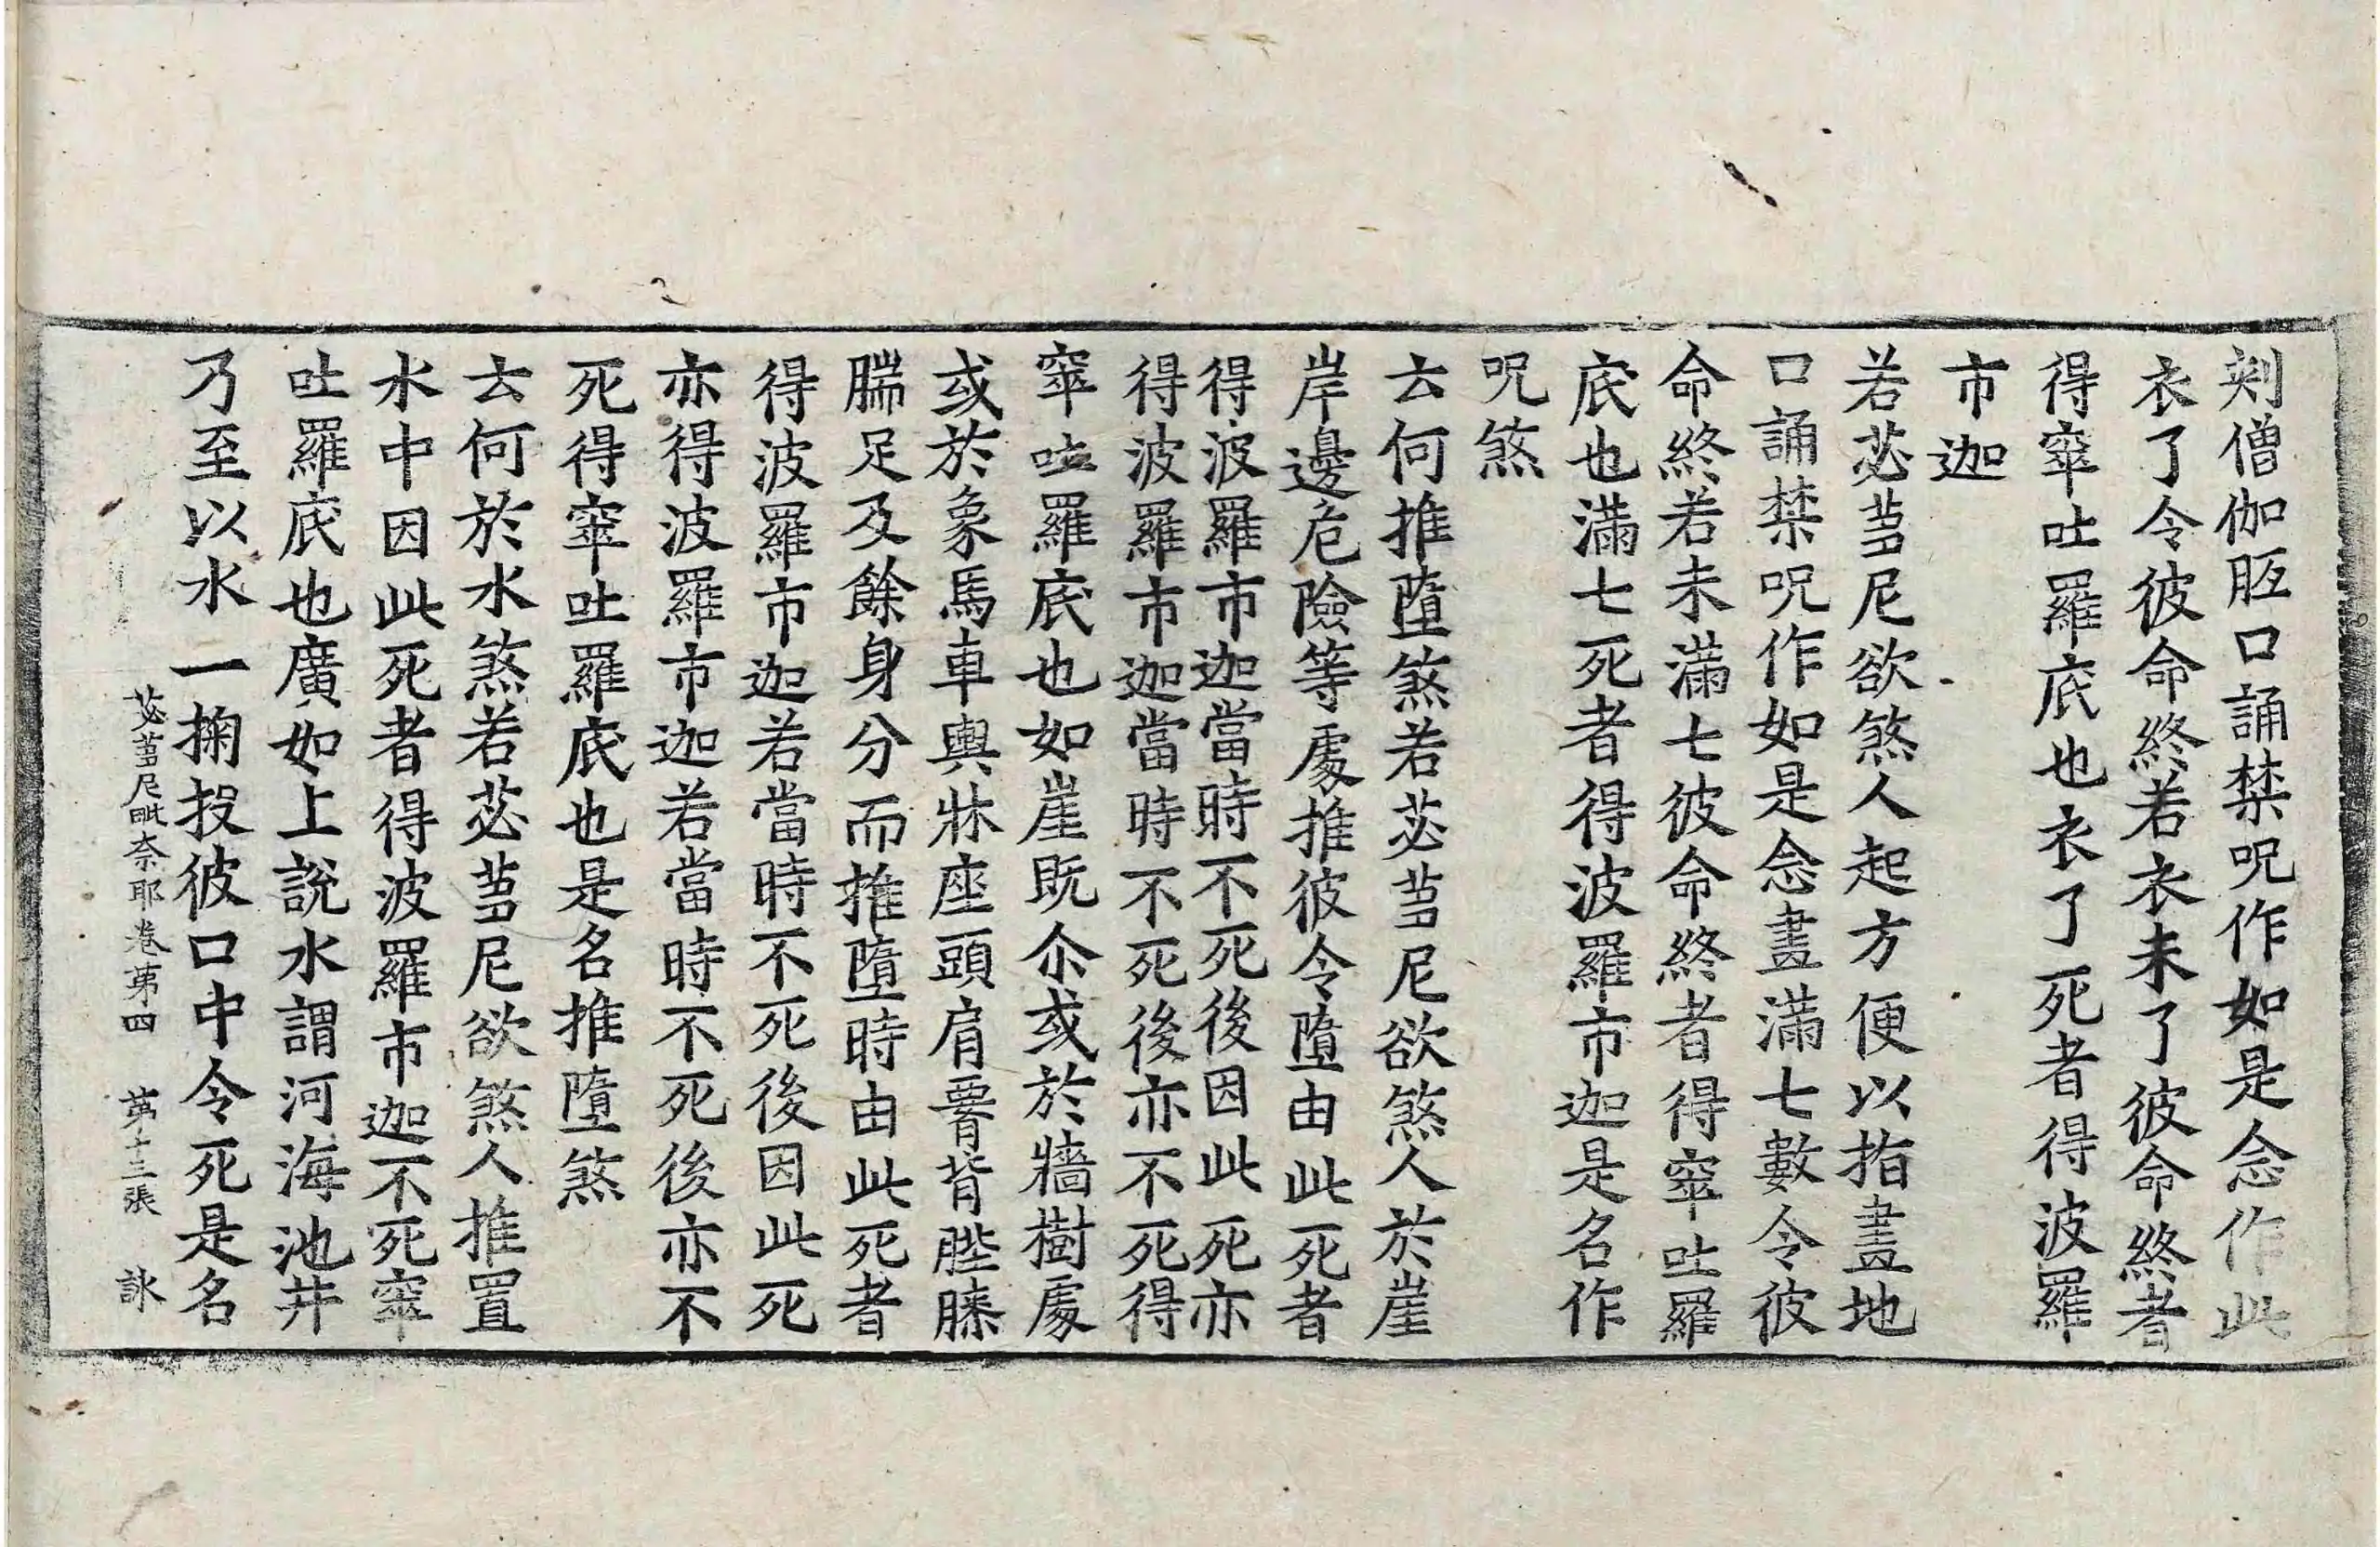 剡僧伽胝口誦禁呪作如是念作此
衣了令彼命終若衣未了彼命終者
得窣吐羅底也衣了死者得波羅
市迦
若苾芻尼欲煞人起方便以指畫地
口誦禁呪作如是念畫滿七數令彼
命終若未滿七彼命終者得窣吐羅
底也滿七死者得波羅市迦是名作
呪煞
云何推墮煞若苾芻尼欲煞人於崖
岸邊危險等處推彼令墮由此死者
得波羅市迦當時不死後因此死亦
得波羅市迦當時不死後亦不死得
窣吐羅底也如崖既尒或於牆樹處
或於象馬車輿牀座頭肩䯒背䏶膝
腨足及餘身分而推墮時由此死者
得波羅市迦若當時不死後因此死
亦得波羅市迦若當時不死後亦不
死得窣吐羅底也是名推墮煞
云何於水煞若苾芻尼欲煞人推置
水中因此死者得波羅市迦不死窣
吐羅底也廣如上說水謂河海池井
乃至以水一掬投彼口中令死是名
苾芻尼毗奈耶卷第四 第十三張 詠